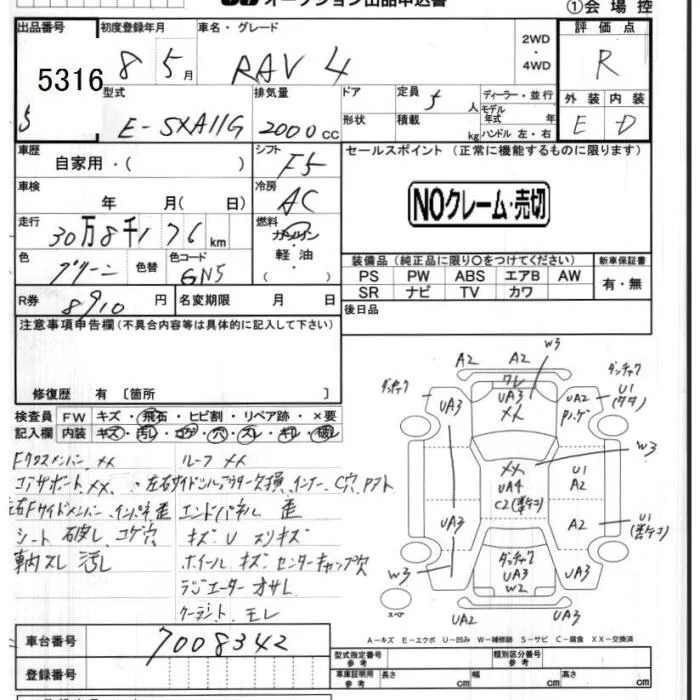 オークション出品申込書
①会場控
出品番号 初度登録年月 車名・グレード 2WD・4WD 評価点
5316 8 5月 RAV4 R
型式 排気量 ドア 定員 5人 ディーラー・並行 外装 内装
E-SXA11G 2000cc 形状 積載 kg モデル年式 年 ハンドル 左・右 E D
車歴 自家用・( ) シフト F5 セールスポイント (正常に機能するものに限ります)
車検 年 月( 日) 冷房 AC
NOクレーム・売切
走行 30万8千176km 燃料 ガソリン
軽油・( )
色 グリーン 色替 色コード 6N5
装備品 (純正品に限り○をつけてください) 新車保証書
PS PW ABS エアB AW 有・無
SR ナビ TV カワ
R券 8910円 名変期限 月 日 後日品
注意事項申告欄(不具合内容等は具体的に記入して下さい)
修復歴 有 〔箇所 〕
検査員 FW キズ・飛石・ヒビ割・リペア跡・×要
記入欄 内装 キズ・汚レ・コゲ・穴・スレ・キレ・破レ
Fクロスメンバー XX ルーフ XX
コアサポート XX 左右サイドシルアウター欠損 インナー C穴
左右Fサイドメンバー インパネ歪 エンドパネル 歪
シート 破レ コゲ穴 キズ U スリキズ
車内スレ 汚レ ホイール キズ センターキャップ欠
ラジエーター オサレ
クーラント モレ
W3
A2 A2
ワレ
UA3 UA3 XX UA2 U1
W3
XX UA4 C2 U1 A2
UA3 A2 U1
W3 UA3 W2 UA3
スペア UA2 UA3
A−キズ E−エクボ U−凹み W−補修跡 S−サビ C−腐食 XX−交換済
車台番号 7008342
型式指定番号 参考 類別区分番号 参考
登録番号
車庫証明用 参考 長さ cm 幅 cm 高さ cm